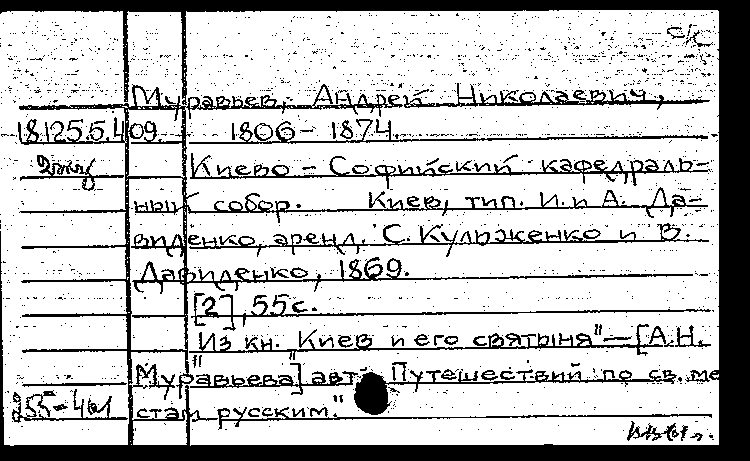 с/к
Муравьев, Андрей Николаевич,
18.125.5.409. 1806 - 1874.
Киево - Софийский кафедраль-
ный собор. Киев, тип. И. и А. Да-
виденко, аренд. С. Кульженко и В.
Давиденко, 1869.
[2], 55 с.
Из кн. "Киев и его святыня" — [А.Н.
Муравьева] авт. "Путешествий по св. ме
стам русским."
255-461